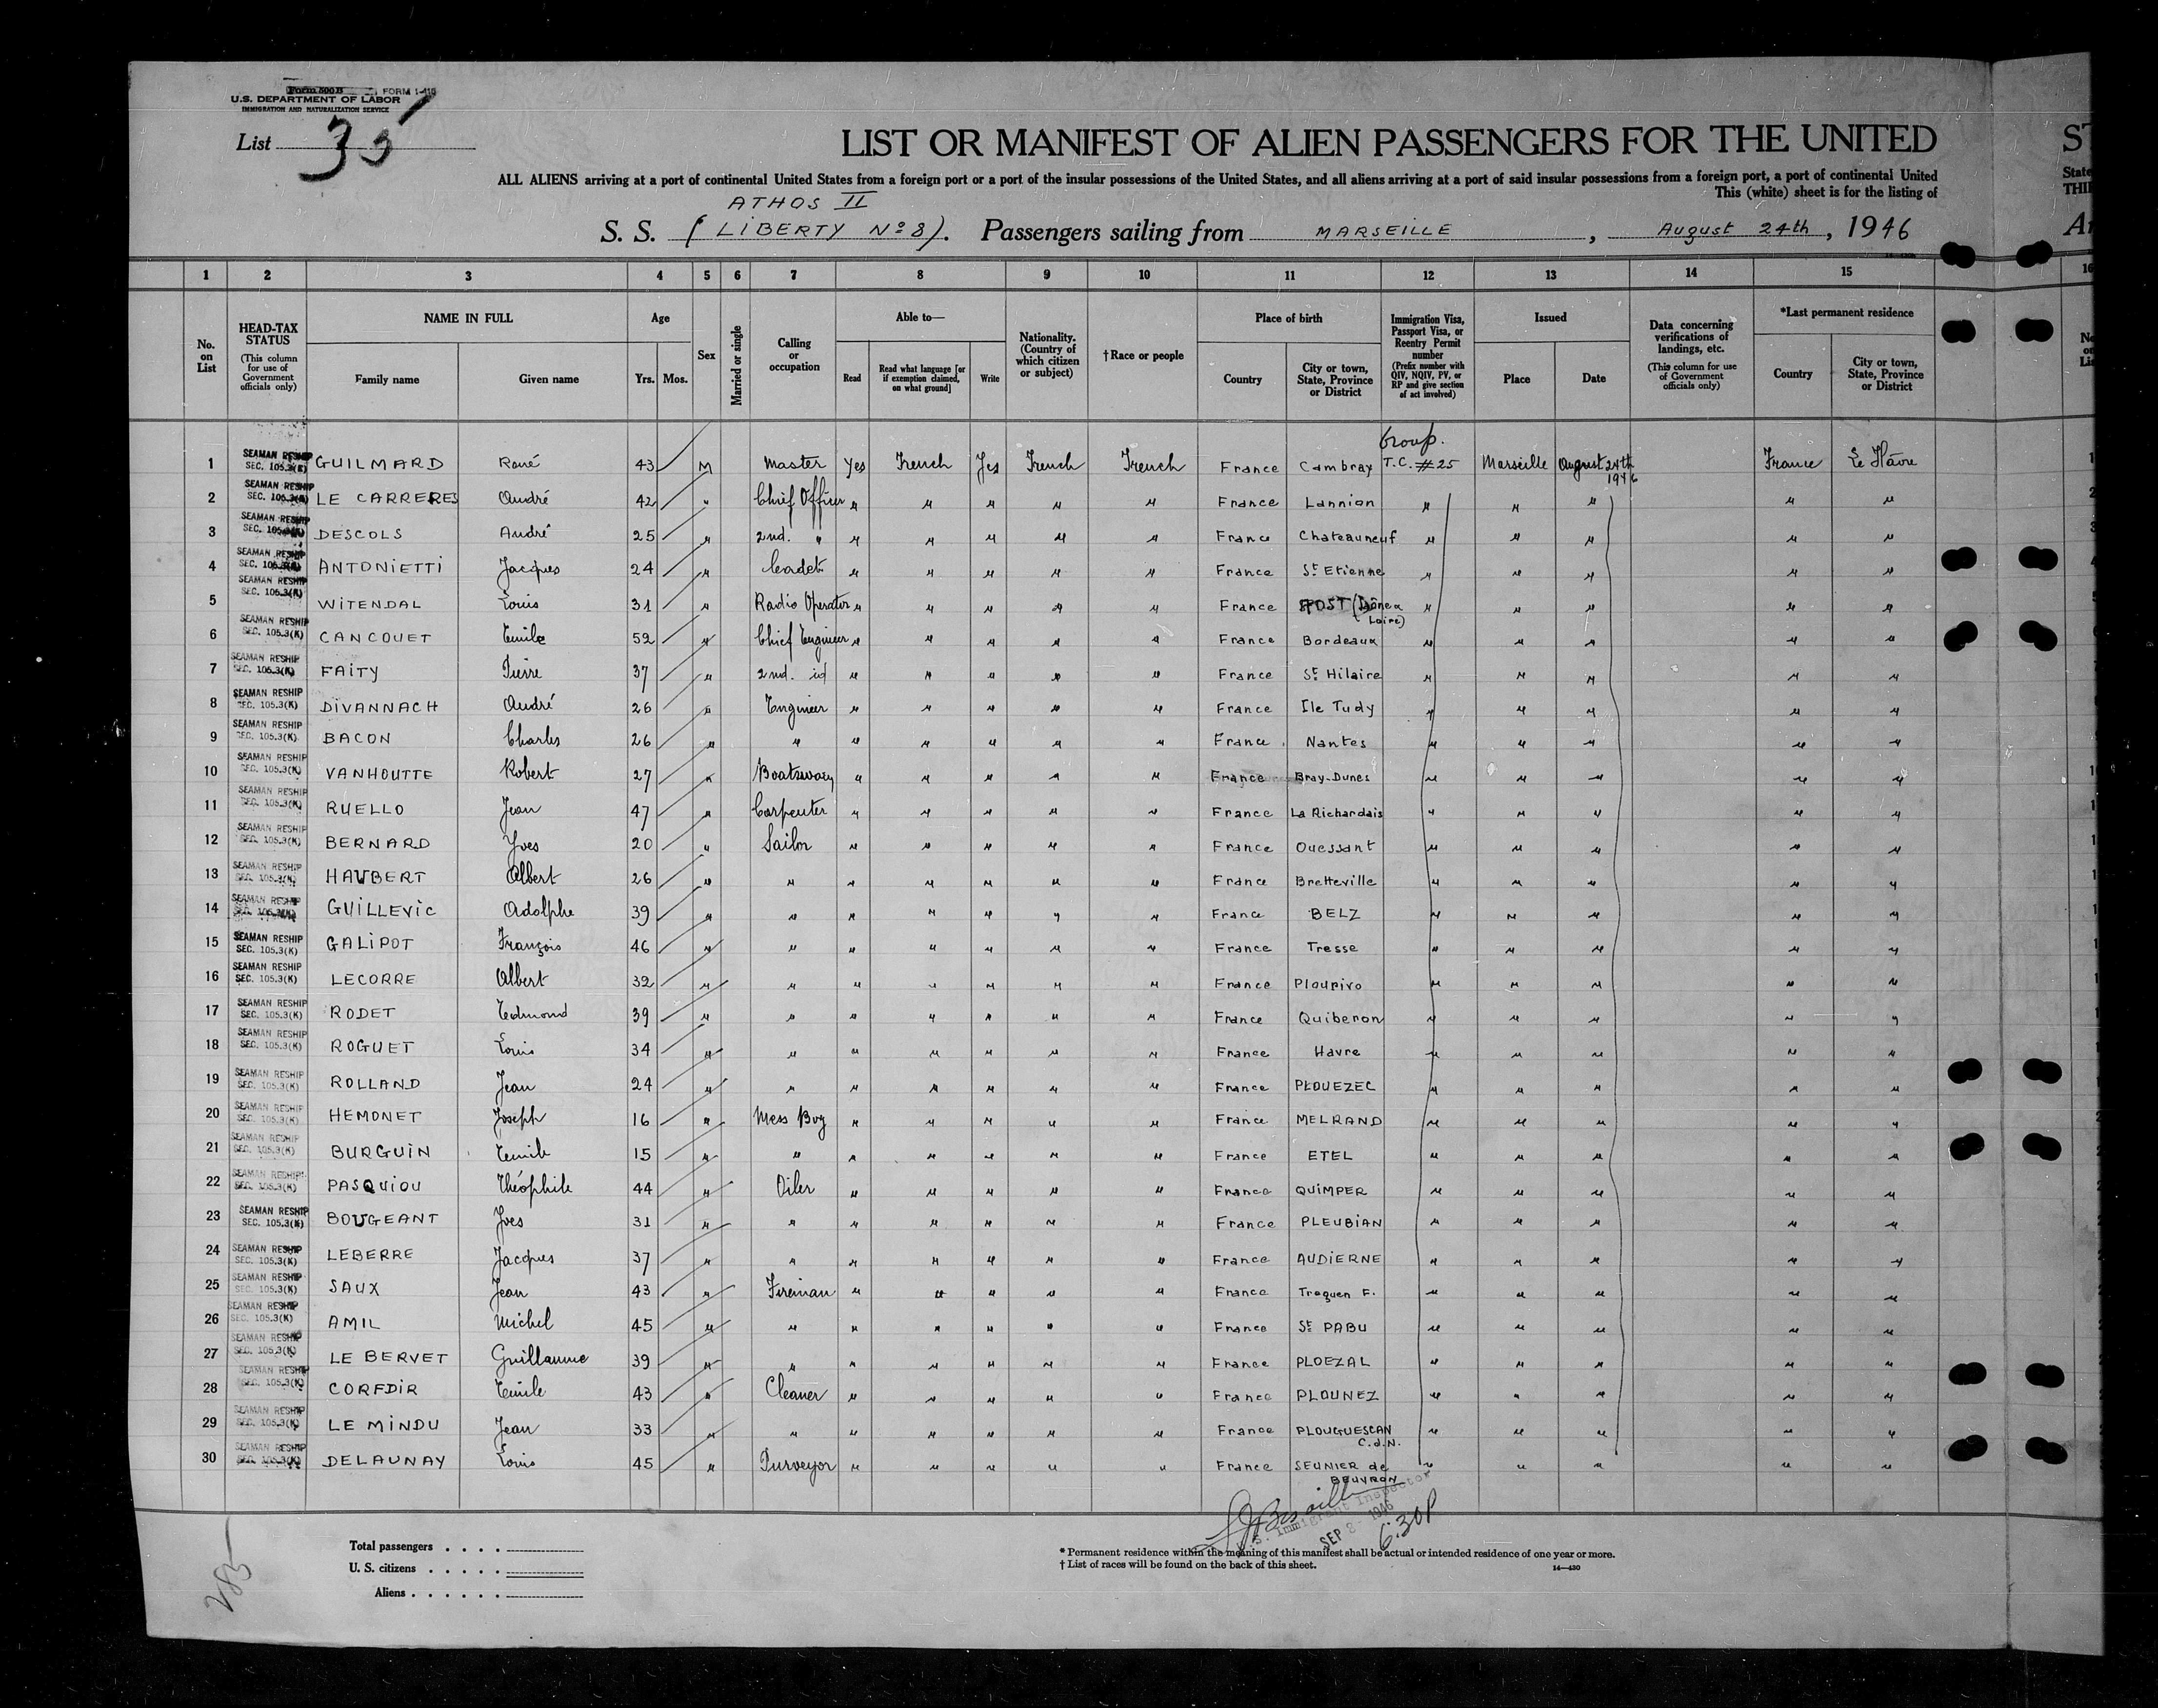 Form 500 B FORM I-415
U.S. DEPARTMENT OF LABOR
IMMIGRATION AND NATURALIZATION SERVICE
List 35
LIST OR MANIFEST OF ALIEN PASSENGERS FOR THE UNITED ST
ALL ALIENS arriving at a port of continental United States from a foreign port or a port of the insular possessions of the United States, and all aliens arriving at a port of said insular possessions from a foreign port, a port of continental United State
This (white) sheet is for the listing of THI
ATHOS II
S. S. (LIBERTY Nº 8). Passengers sailing from MARSEILLE, August 24th, 1946
1 2 3 4 5 6 7 8 9 10 11 12 13 14 15 16
No. on List
HEAD-TAX STATUS (This column for use of Government officials only)
NAME IN FULL Family name Given name
Age Yrs. Mos.
Sex
Married or single
Calling or occupation
Able to— Read Read what language [or if exemption claimed, on what ground] Write
Nationality. (Country of which citizen or subject)
†Race or people
Place of birth Country City or town, State, Province or District
Immigration Visa, Passport Visa, or Reentry Permit number (Prefix number with QIV, NQIV, PV, or RP and give section of act involved)
Issued Place Date
Data concerning verifications of landings, etc. (This column for use of Government officials only)
*Last permanent residence Country City or town, State, Province or District
Group.
1 SEAMAN RESHIP SEC. 105.3(K) GUILMARD René 43 M Master Yes French Yes French French France Cambray T.C. #25 Marseille August 24th 1946 France Le Hâvre
2 SEAMAN RESHIP SEC. 105.3(K) LE CARRERES André 42 " Chief Officer " " " " " France Lannion " " " " "
3 SEAMAN RESHIP SEC. 105.3(K) DESCOLS André 25 " 2nd. " " " " " " France Chateauneuf " " " " "
4 SEAMAN RESHIP SEC. 105.3(K) ANTONIETTI Jacques 24 " Cadet " " " " " France St Etienne " " " " "
5 SEAMAN RESHIP SEC. 105.3(K) WITENDAL Louis 31 " Radio Operator " " " " " France Loire) " " " " "
6 SEAMAN RESHIP SEC. 105.3(K) CANCOUET Emile 52 " Chief Engineer " " " " " France Bordeaux " " " " "
7 SEAMAN RESHIP SEC. 105.3(K) FAITY Pierre 37 " 2nd. id " " " " " France St Hilaire " " " " "
8 SEAMAN RESHIP SEC. 105.3(K) DIVANNACH André 26 " Engineer " " " " " France Ile Tudy " " " " "
9 SEAMAN RESHIP SEC. 105.3(K) BACON Charles 26 " " " " " " " France Nantes " " " " "
10 SEAMAN RESHIP SEC. 105.3(K) VANHOUTTE Robert 27 " " " " " " France Bray-Dunes " " " " "
11 SEAMAN RESHIP SEC. 105.3(K) RUELLO Jean 47 " Carpenter " " " " " France La Richardais " " " " "
12 SEAMAN RESHIP SEC. 105.3(K) BERNARD Yves 20 " Sailor " " " " " France Ouessant " " " " "
13 SEAMAN RESHIP SEC. 105.3(K) HAUBERT Albert 26 " " " " " " " France Bretteville " " " " "
14 SEAMAN RESHIP SEC. 105.3(K) GUILLEVIC Adolphe 39 " " " " " " " France BELZ " " " " "
15 SEAMAN RESHIP SEC. 105.3(K) GALIPOT François 46 " " " " " " " France Tresse " " " " "
16 SEAMAN RESHIP SEC. 105.3(K) LECORRE Albert 32 " " " " " " " France Plourivo " " " " "
17 SEAMAN RESHIP SEC. 105.3(K) RODET Edmond 39 " " " " " " " France Quiberon " " " " "
18 SEAMAN RESHIP SEC. 105.3(K) ROGUET Louis 34 " " " " " " " France Havre " " " " "
19 SEAMAN RESHIP SEC. 105.3(K) ROLLAND Jean 24 " " " " " " " France PLOUEZEC " " " " "
20 SEAMAN RESHIP SEC. 105.3(K) HEMONET Joseph 16 " Mess Boy " " " " " France MELRAND " " " " "
21 SEAMAN RESHIP SEC. 105.3(K) BURGUIN Emile 15 " " " " " " " France ETEL " " " " "
22 SEAMAN RESHIP SEC. 105.3(K) PASQUIOU Théophile 44 " Oiler " " " " " France QUIMPER " " " " "
23 SEAMAN RESHIP SEC. 105.3(K) BOUGEANT Yves 31 " " " " " " " France PLEUBIAN " " " " "
24 SEAMAN RESHIP SEC. 105.3(K) LEBERRE Jacques 37 " " " " " " " France AUDIERNE " " " " "
25 SEAMAN RESHIP SEC. 105.3(K) SAUX Jean 43 " Fireman " " " " " France Treguen F. " " " " "
26 SEAMAN RESHIP SEC. 105.3(K) AMIL Michel 45 " " " " " " " France St PABU " " " " "
27 SEAMAN RESHIP SEC. 105.3(K) LE BERVET Guillaume 39 " " " " " " " France PLOEZAL " " " " "
28 SEAMAN RESHIP SEC. 105.3(K) CORFDIR Emile 43 " Cleaner " " " " " France PLOUNEZ " " " " "
29 SEAMAN RESHIP SEC. 105.3(K) LE MINDU Jean 33 " " " " " " " France PLOUGUESCAN C.d.N. " " " " "
30 SEAMAN RESHIP SEC. 105.3(K) DELAUNAY Louis 45 " Purveyor " " " " " France SEUNIER de BEUVRON " " " " "
Immigrant Inspector
SEP 8 - 1946
6:30P
Total passengers
U. S. citizens
Aliens
285
* Permanent residence within the meaning of this manifest shall be actual or intended residence of one year or more.
† List of races will be found on the back of this sheet.
14—430